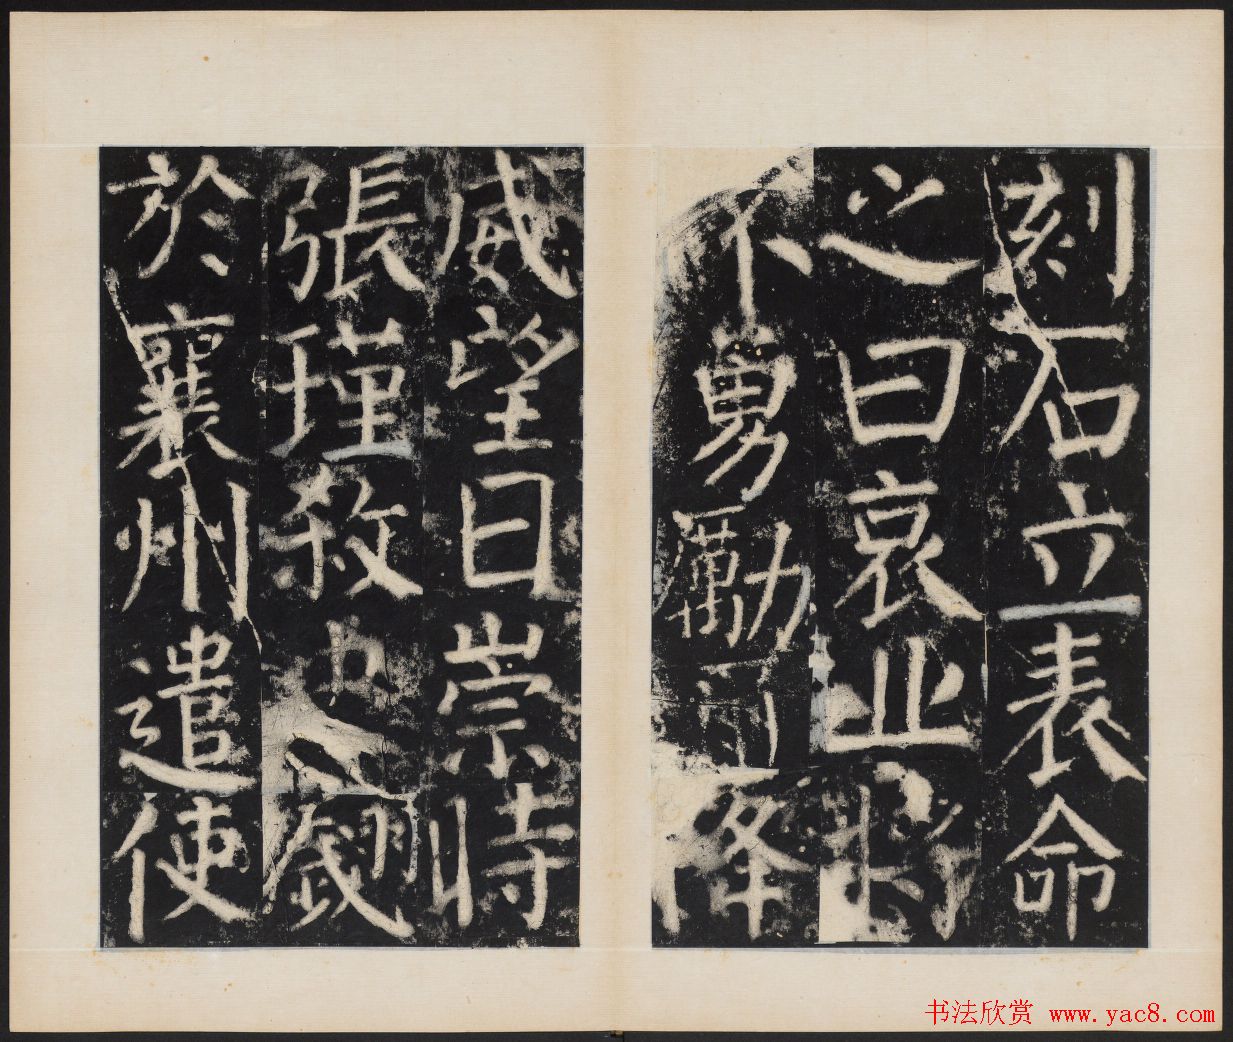 刻石立表命
之曰哀止將
不勇勵可降
威望日崇時
張瑾殺史翽
於襄州遣使
书法欣赏 www.yac8.com